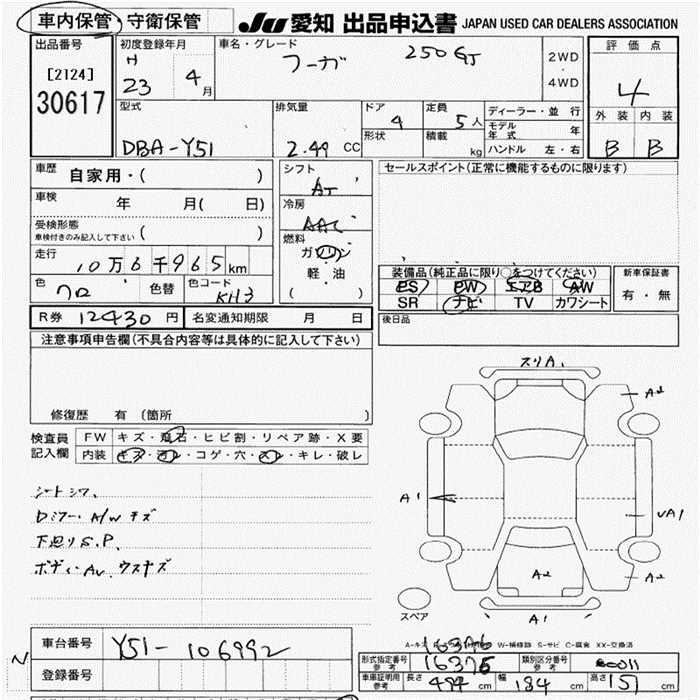 車内保管・守衛保管
JU 愛知 出品申込書 JAPAN USED CAR DEALERS ASSOCIATION
出品番号
[2124]
30617
初度登録年月
H
23 4月
車名・グレード
フーガ 250GT
2WD
・
4WD
評価点
4
外装 内装
B B
型式
DBA-Y51
排気量
2.49 CC
ドア
4
形状
定員
5人
積載
kg
ディーラー・並行
モデル年式 年
ハンドル 左・右
車歴
自家用・( )
車検
年 月( 日)
受検形態
車検付きのみ記入して下さい ( )
走行
10万6千965km
色
クロ
色替
色コード
KH3
シフト
AT
冷房
AAC
燃料
ガソリン
軽・油
( )
セールスポイント(正常に機能するものに限ります)
装備品(純正品に限り○をつけてください)
PS PW エアB AW
SR ナビ TV カワシート
新車保証書
有・無
後日品
R券 12430円 名変通知期限 月 日
注意事項申告欄(不具合内容等は具体的に記入して下さい)
修復歴 有(箇所 )
検査員
記入欄
FW キズ・飛石・ヒビ割・リペア跡・X要
内装 キズ・汚レ・コゲ・穴・スレ・キレ・破レ
シートシワ、
Dミラー・A/Wキズ
下廻りS.P.
ボディーAv. ウスキズ
スリA1
A2
A1
VA1
A2
A2
A1
スペア
W-補修跡 S-サビ C-腐食 XX-交換済
車台番号
Y51-106992
登録番号
N
形式指定番号
参考
16376
類別区分番号
参考
車庫証明用
参考
長さ 494 cm 幅 184 cm 高さ 151 cm